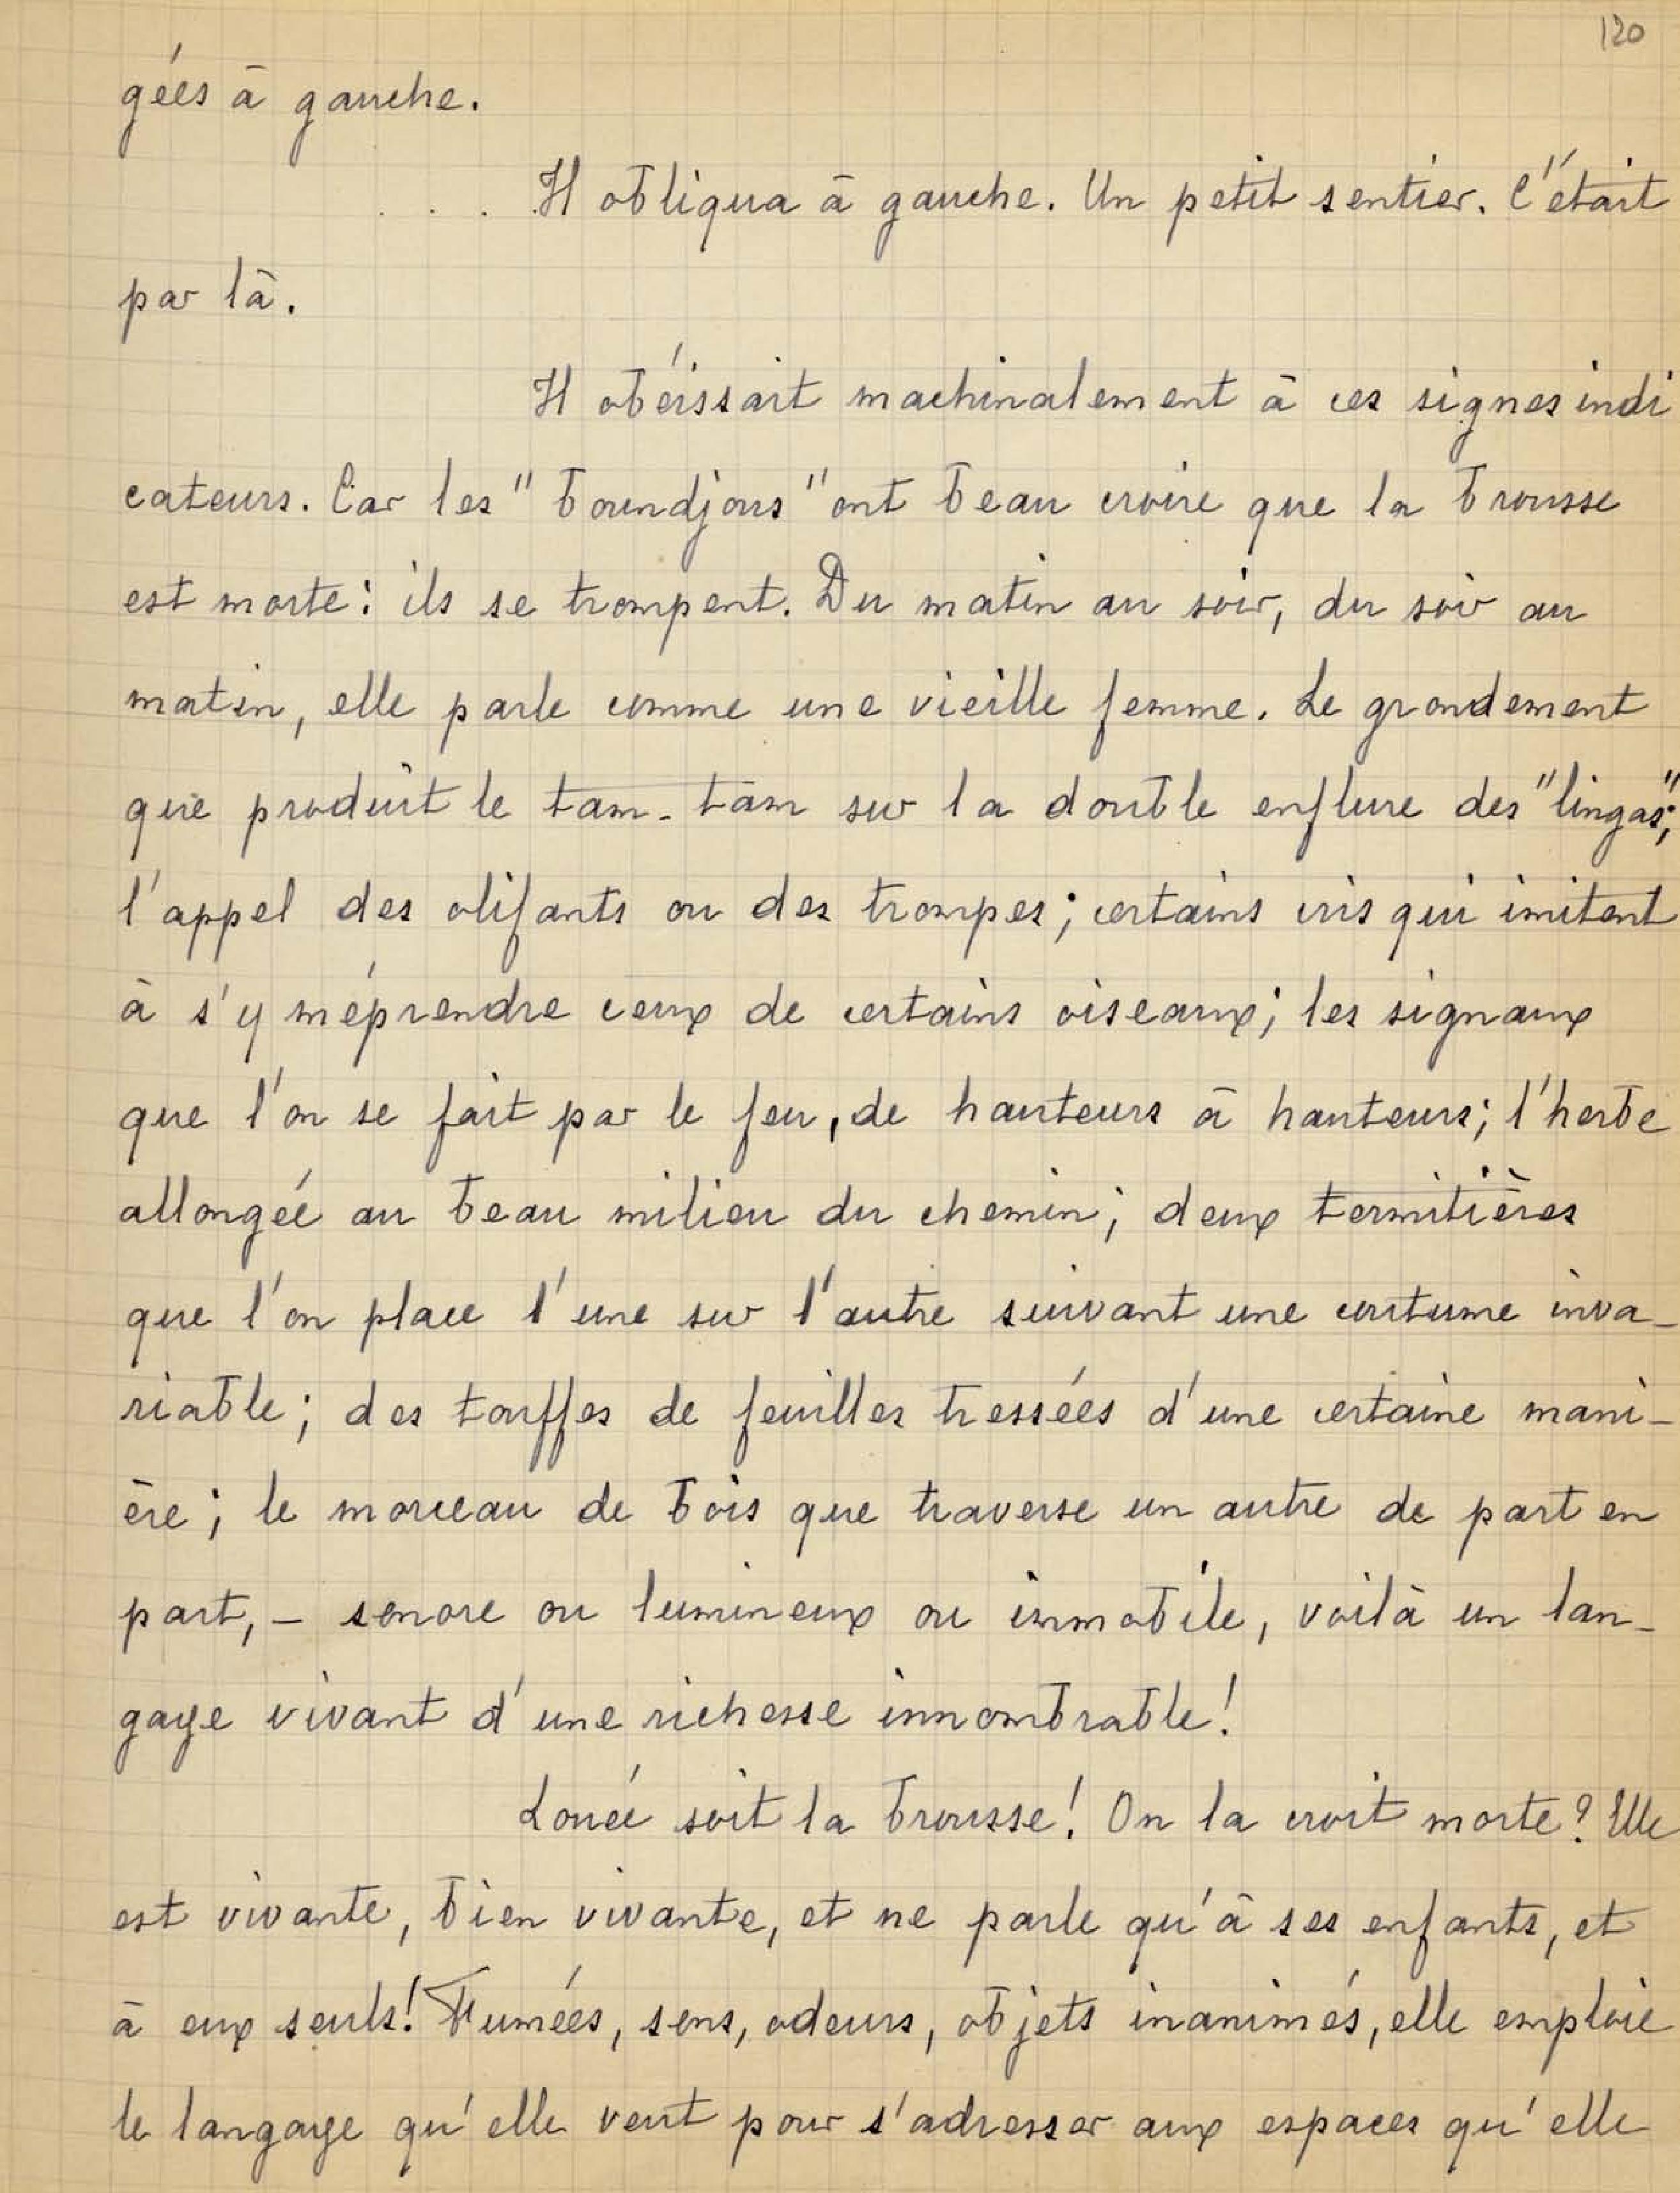 120
gées à gauche.
. . . Il obliqua à gauche. Un petit sentier. C'était
par là.
Il obéissait machinalement à ces signes indi
cateurs. Car les "boundjous" ont beau croire que la brousse
est morte : ils se trompent. Du matin au soir, du soir au
matin, elle parle comme une vieille femme. Le grondement
que produit le tam-tam sur la double enflure des "lingas";
l'appel des olifants ou des trompes ; certains cris qui imitent
à s'y méprendre ceux de certains oiseaux ; les signaux
que l'on se fait par le feu, de hauteurs à hauteurs ; l'herbe
allongée au beau milieu du chemin ; deux termitières
que l'on place l'une sur l'autre suivant une coutume inva-
riable ; des touffes de feuilles tressées d'une certaine mani-
ère ; le morceau de bois que traverse un autre de part en
part, - sonore ou lumineux ou immobile, voilà un lan-
gage vivant d'une richesse innombrable !
Louée soit la brousse ! On la croit morte ? Elle
est vivante, bien vivante, et ne parle qu'à ses enfants, et
à eux seuls ! Fumées, sons, odeurs, objets inanimés, elle emploie
le langage qu'elle veut pour s'adresser aux espaces qu'elle